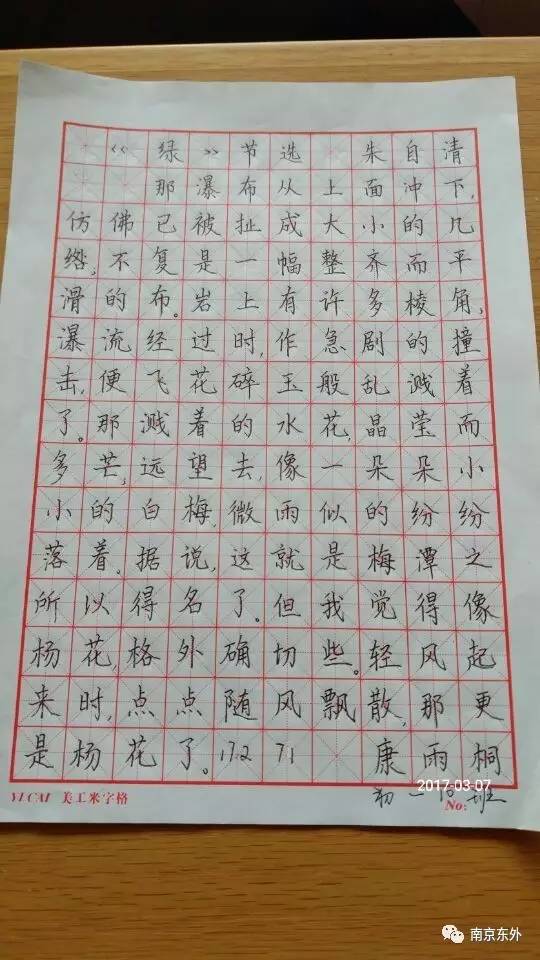 《绿》节选 朱自清
那瀑布从上面冲下,
仿佛已被扯成大小的几
绺,不复是一幅整齐而平
滑的布。岩上有许多棱角,
瀑流经过时,作急剧的撞
击,便飞花碎玉般乱溅着
了。那溅着的水花,晶莹而
多芒,远望去,像一朵朵小
小的白梅,微雨似的纷纷
落着。据说,这就是梅潭之
所以得名了。但我觉得像
杨花,格外确切些。轻风起
来时,点点随风飘散,那更
是杨花了。 康雨桐
2017-03-07
YLCAI 美工米字格 No:
初一 班
南京东外